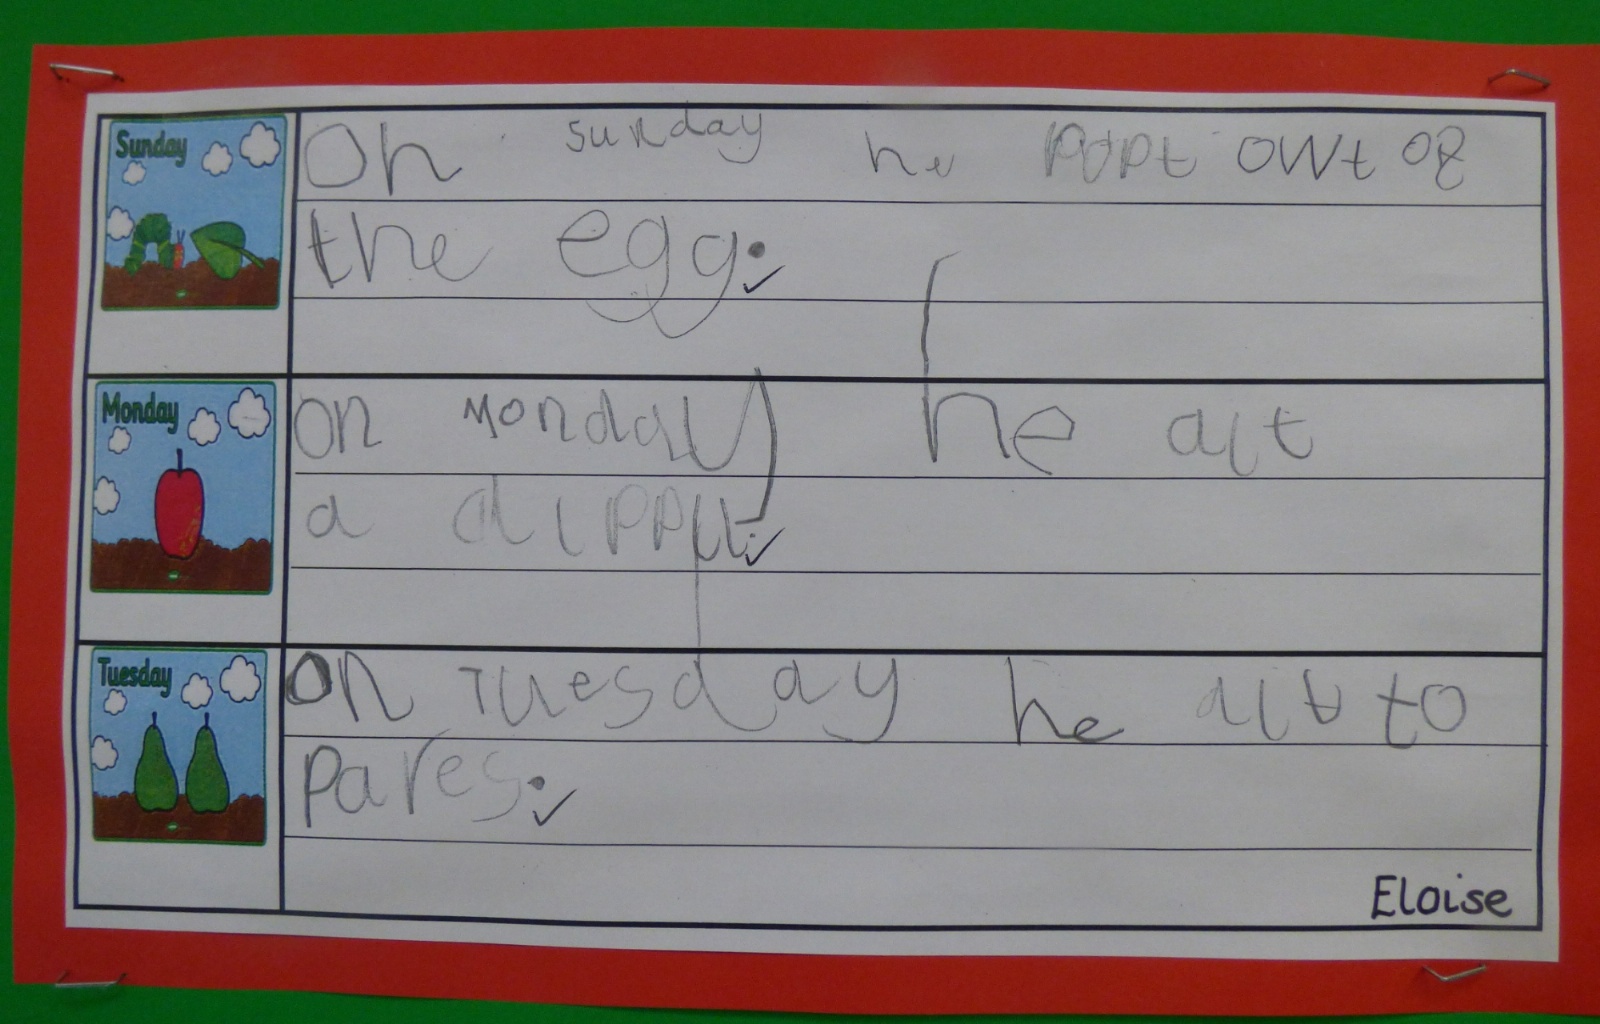 Sunday
On sunday he popt owt of
the egg.
Monday
on monday he ait
a aippll.
Tuesday
on Tuesday he ait to
pares.
Eloise